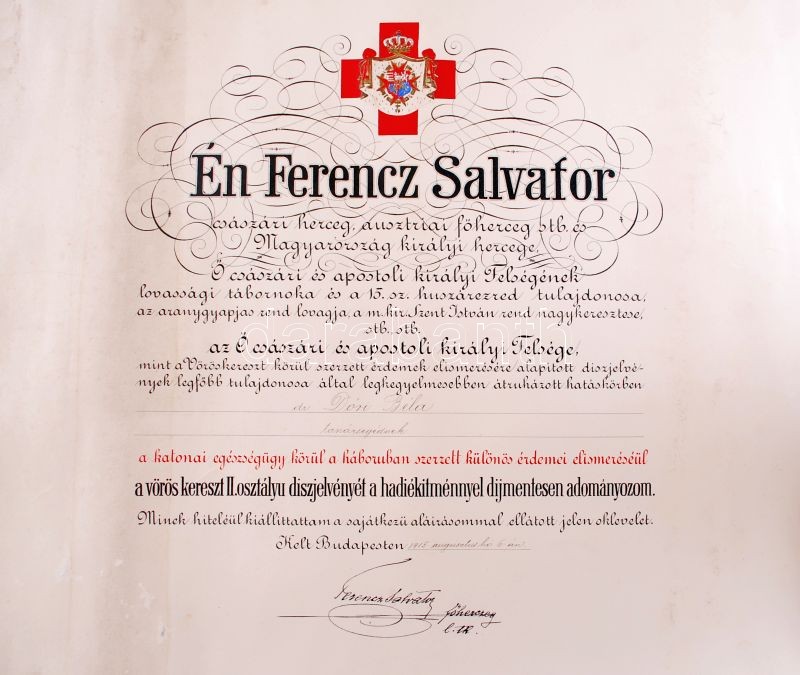 Én Ferencz Salvator
császári herceg, ausztriai főherceg stb. és
Magyarország királyi hercege,
Ő császári és apostoli királyi Felségének
lovassági tábornoka és a 15. sz. huszárezred tulajdonosa,
az aranygyapjas rend lovagja, a m. kir. Szent István rend nagykeresztese,
stb. stb.
az Ő császári és apostoli királyi Felsége,
mint a Vöröskereszt körül szerzett érdemek elismerésére alapított diszjelvé-
nyek legfőbb tulajdonosa által legkegyelmesebben átruházott hatáskörben
dr Dóri Béla
tanársegédnek
a katonai egészségügy körül a háboruban szerzett különös érdemei elismeréséül
a vörös kereszt II. osztályu diszjelvényét a hadiékitménnyel dijmentesen adományozom.
Minek hiteléül kiállittattam a sajátkezü aláirásommal ellátott jelen oklevelet.
Kelt Budapesten 1915 augusztus hó 6-án.
Ferencz Salvator
főherczeg
l. tk.
darabanth